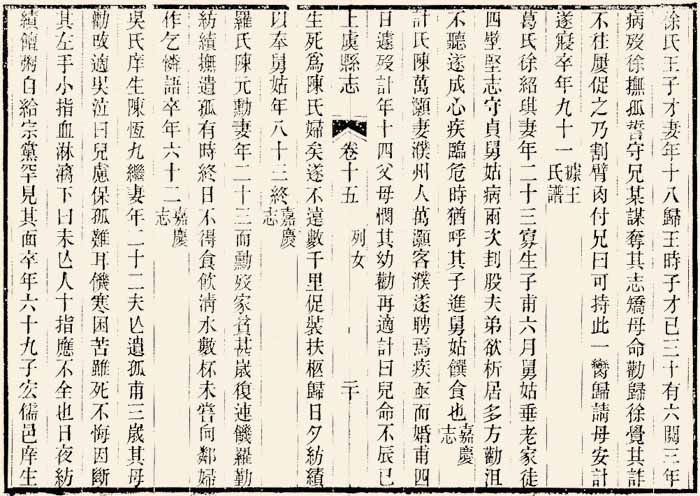 徐氏王子才妻年十八歸王時子才已三十有六閱三年
病歿徐撫孤誓守兄某謀奪其志矯母命勸歸徐覺其詐
不往屢促之乃割臂肉付兄曰可持此一臠歸請母安計
遂寢卒年九十一據王氏譜
葛氏徐紹琪妻年二十三寡生子甫六月舅姑垂老家徒
四壁堅志守貞舅姑病兩次刲股夫弟欲析居多方勸沮
不聽遂成心疾臨危時猶呼其子進舅姑饌食也嘉慶志
計氏陳萬灝妻濮州人萬灝客濮遂聘焉疾亟而婚甫四
日遽歿計年十四父母憫其幼勸再適計曰兒命不辰已
上虞縣志 卷十五 列女 二十
生死為陳氏婦矣遂不遠數千里促裝扶柩歸日夕紡績
以奉舅姑年八十三終嘉慶志
羅氏陳元勳妻年二十三而勳歿家貧甚歲復連饑羅勤
紡績撫遺孤有時終日不得食飲清水數杯未嘗向鄰婦
作乞憐語卒年六十二嘉慶志
吳氏庠生陳恆九繼妻年二十二夫亾遺孤甫三歲其母
勸改適吳泣曰兒慮保孤難耳饑寒困苦雖死不悔因斷
其左手小指血淋漓下曰未亾人十指應不全也日夜紡
績饘粥自給宗黨罕見其面卒年六十九子宏儒邑庠生